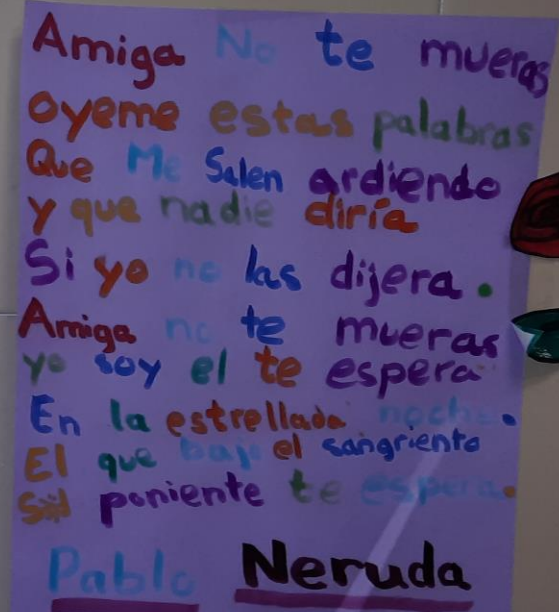 Amiga No te mueras
oyeme estas palabras
Que Me Salen ardiendo
y que nadie diría
Si yo no las dijera.
Amiga no te mueras
yo soy el te espera
En la estrellada noche.
El que bajo el sangriento
Sol poniente te espera.
Pablo Neruda